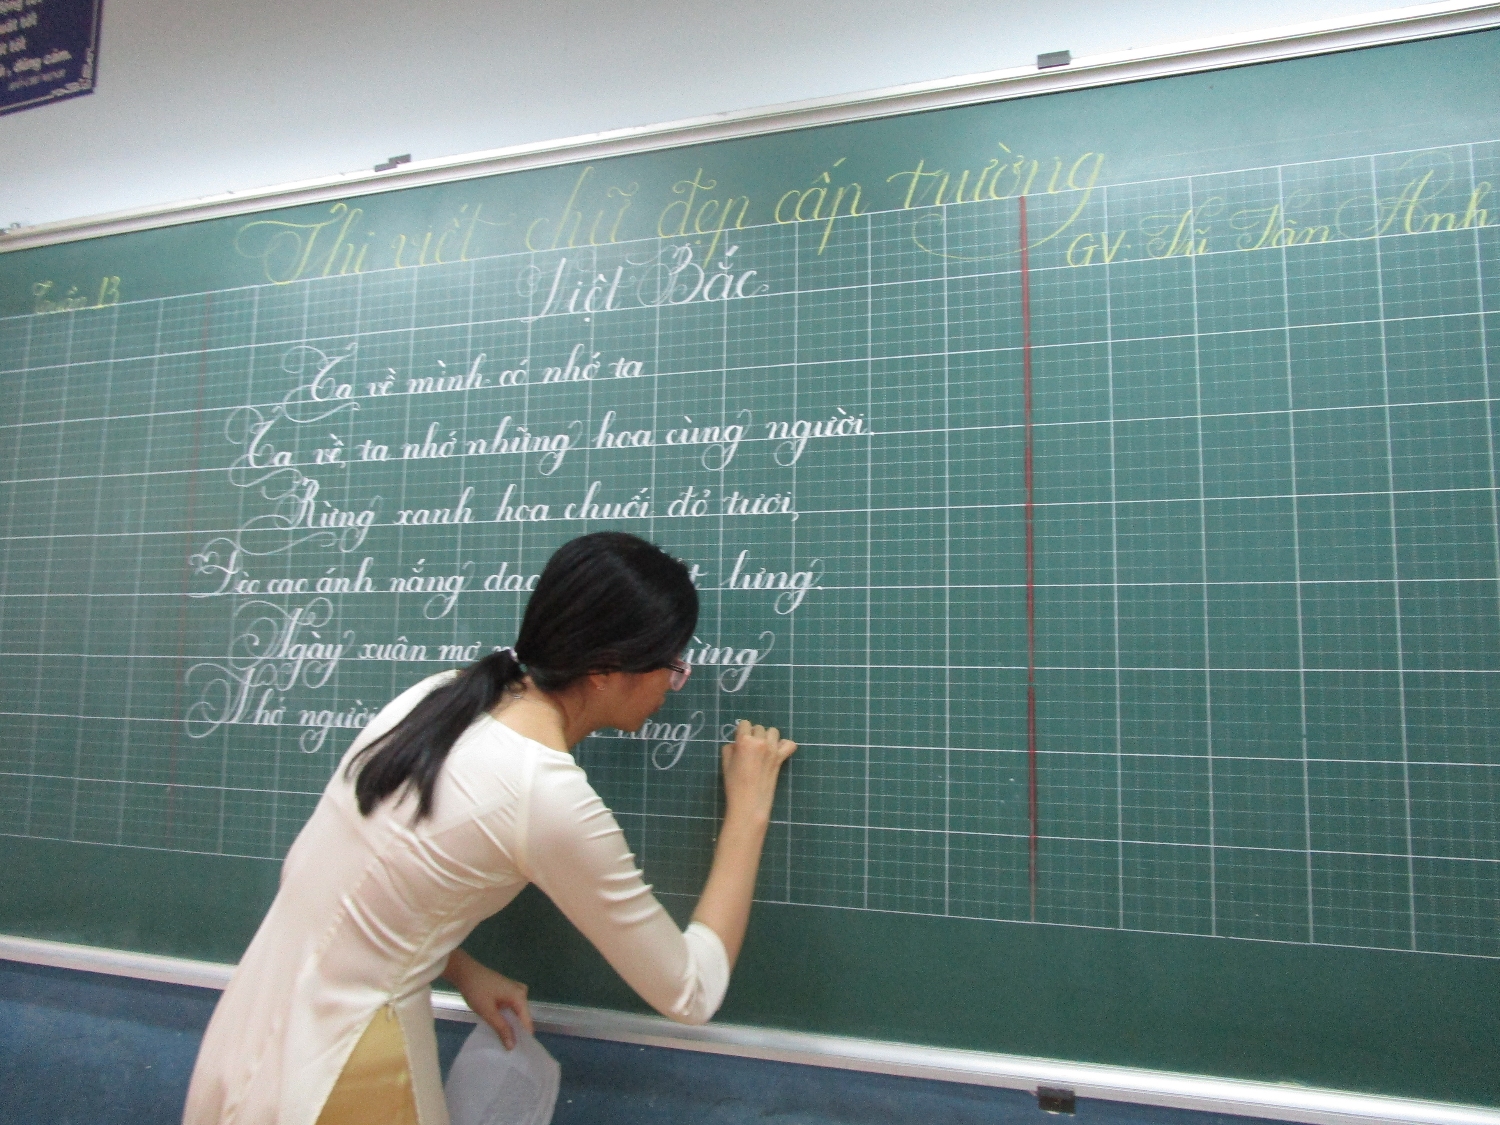 đúng cảm.
Thi viết chữ đẹp cấp trường
GV: Tũ Tân Anh
Tuần 13
Việt Bắc
Ta về mình có nhớ ta
Ta về, ta nhớ những hoa cùng người.
Rừng xanh hoa chuối đỏ tươi,
Đèo cao ánh nắng lưng.
Ngày xuân mơ rừng
Nhớ người từng